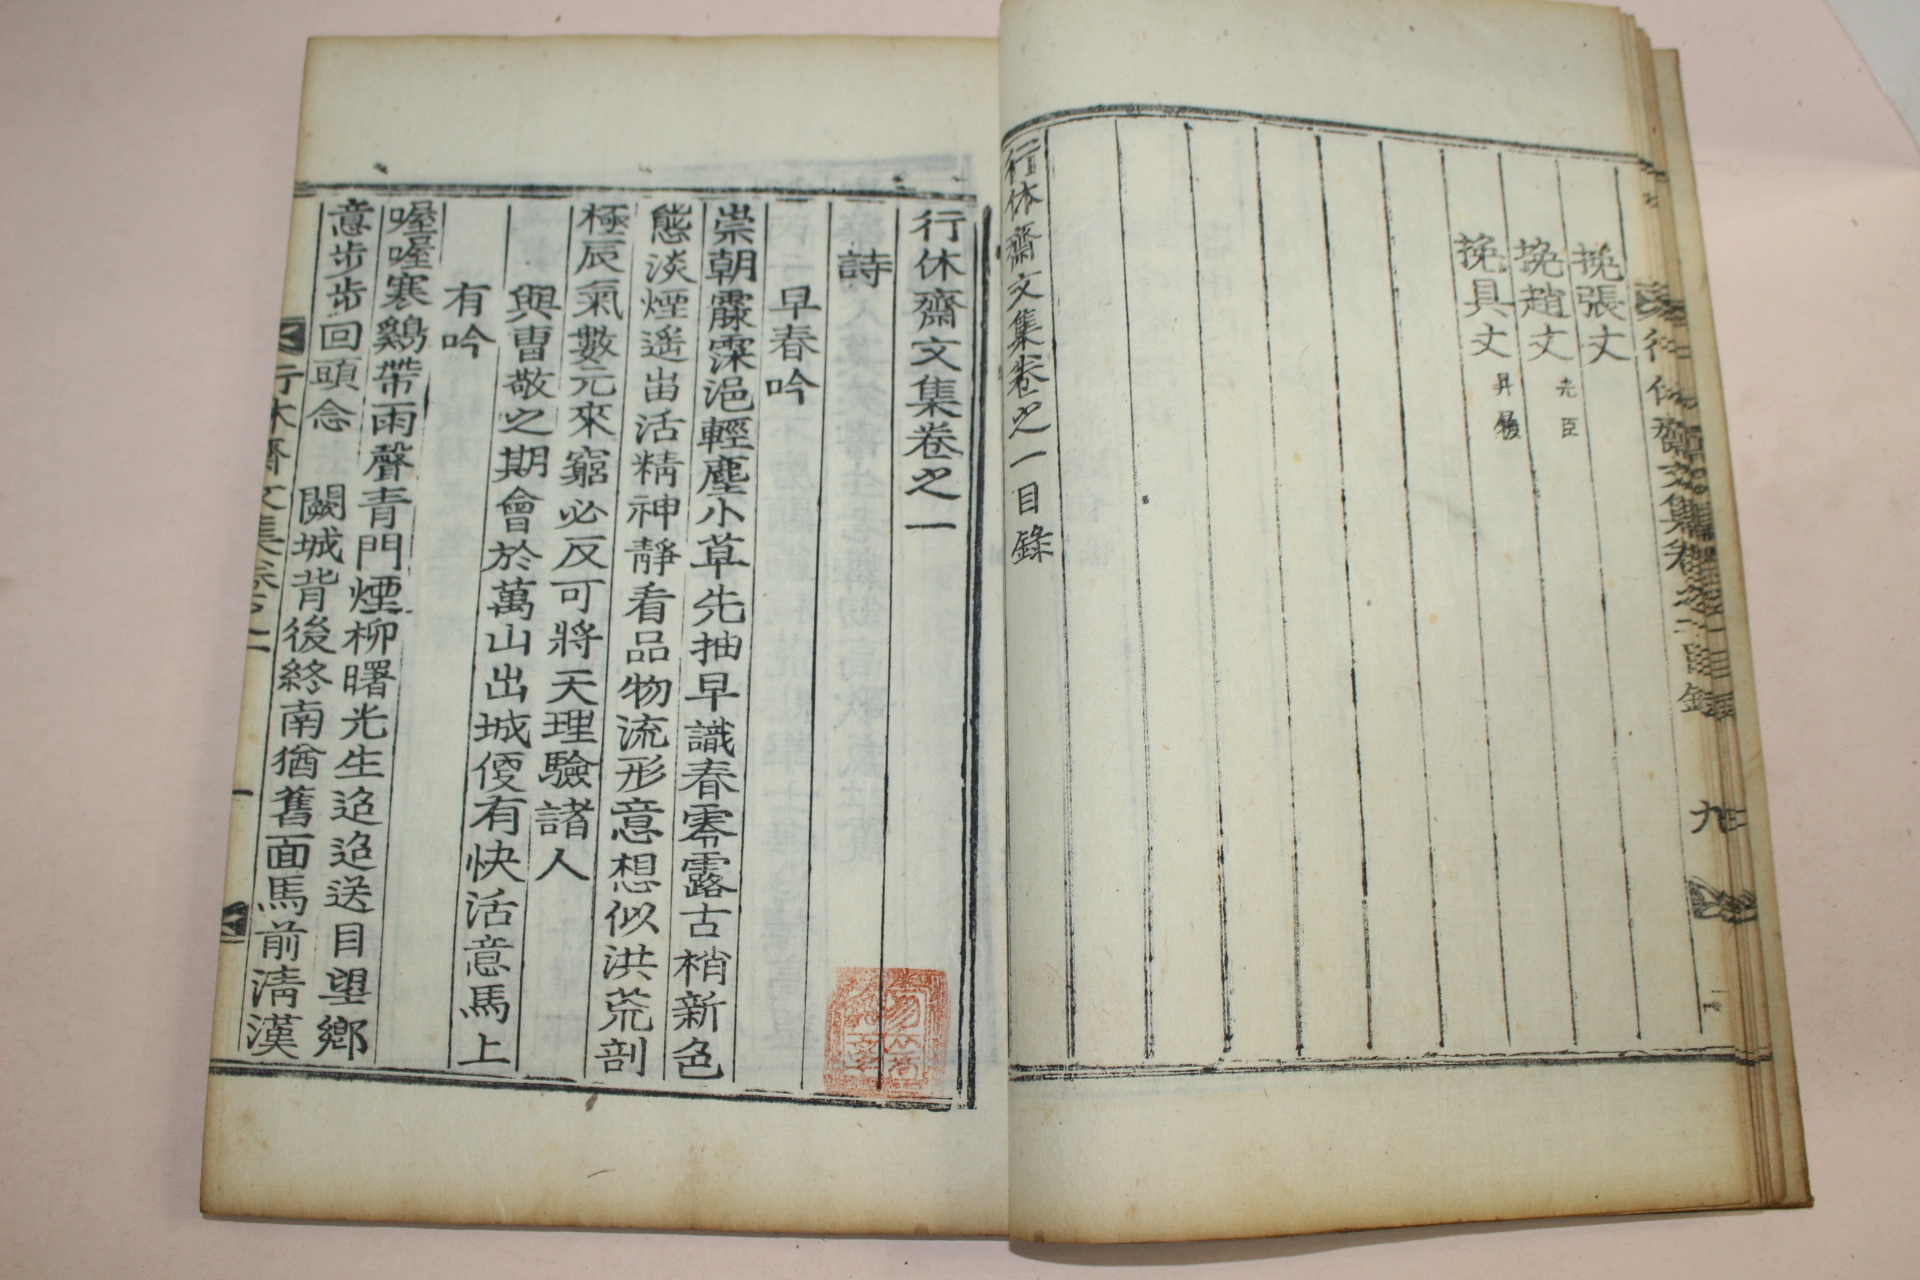 挽張丈
挽趙丈 光臣
挽具丈 昇
行休齋文集卷之一目錄
行休齋文集卷之一目錄
九
行休齋文集卷之一
詩
早春吟
崇朝霢霂浥輕塵小草先抽早識春零露古梢新色
態淡煙遥峀活精神靜看品物流形意想似洪荒剖
極辰氣數元來窮必反可將天理驗諸人
與曺敬之期會於萬山出城便有快活意馬上
有吟
喔喔寒鷄帶雨聲青門煙柳曙光生迨迨送目望鄉
意步步回頭念 闕城背後終南猶舊面馬前淸漢
行休齋文集卷之一
一